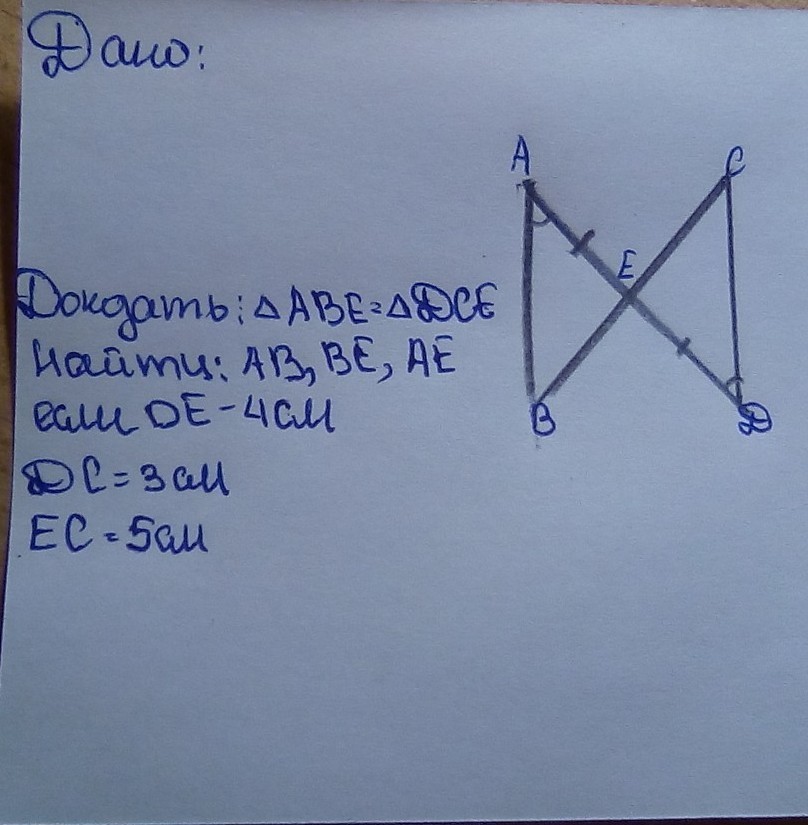 Дано:
A
C
E
Докдать: △ABE=△DCE
Найти: AB, BE, AE
если DE-4см
B
D
DC=3см
EC=5см